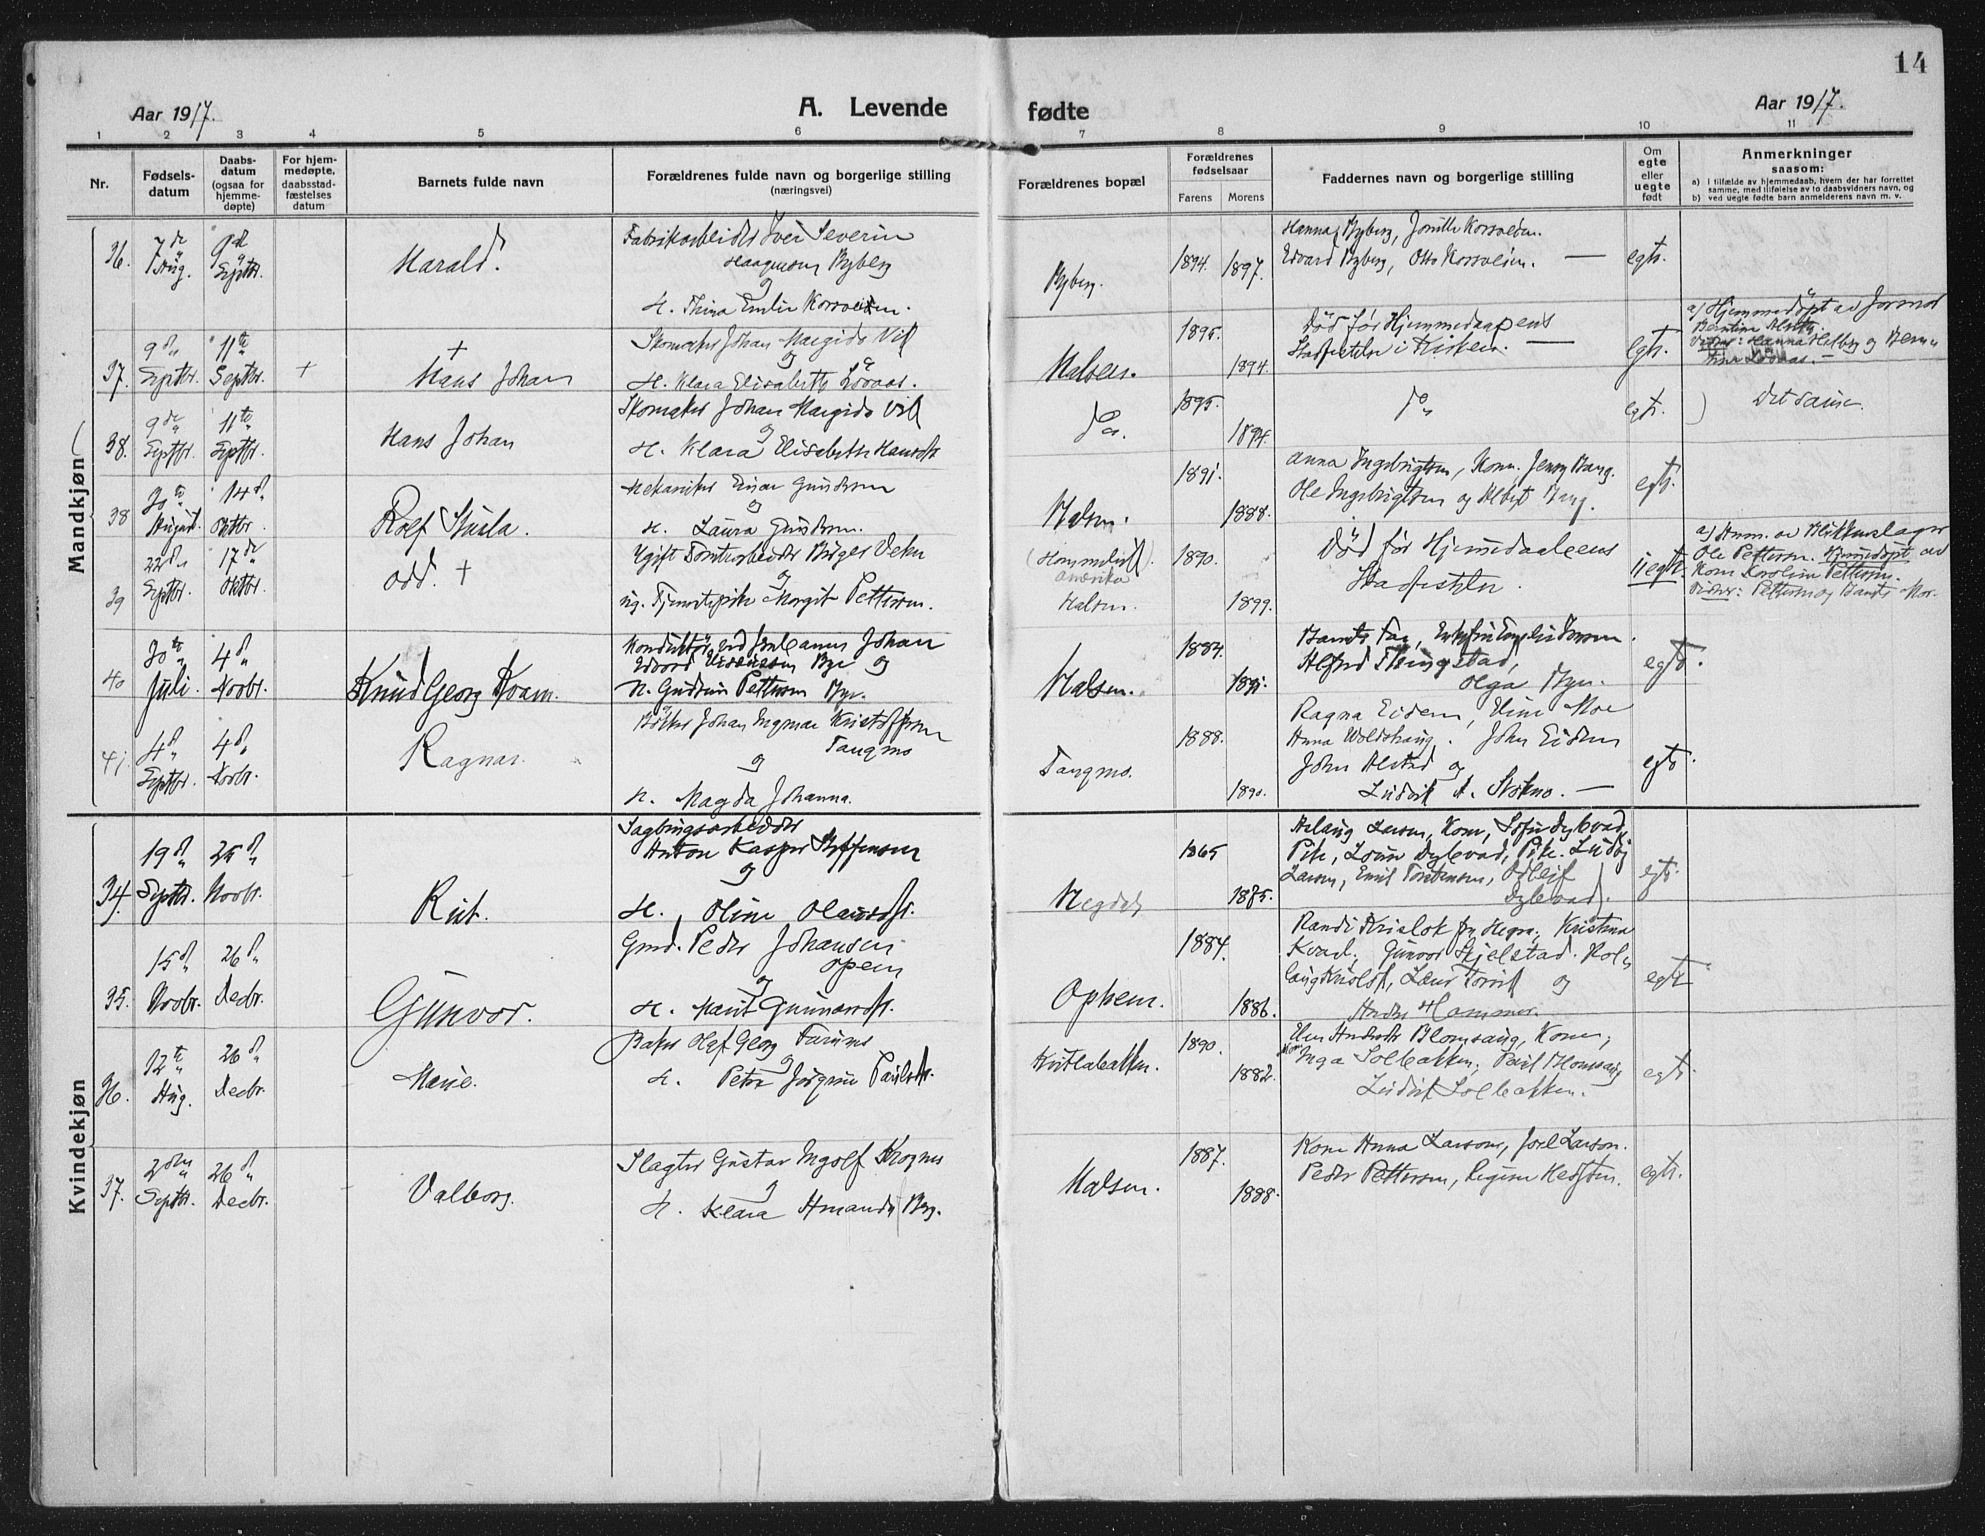 14
Aar 1917.
A. Levende fødte
Aar 1917.
1 2 3 4 5 6 7 8 9 10 11
Nr.
Fødsels-
datum
Daabs-
datum
(ogsaa for
hjemme-
døpte)
For hjem-
medøpte,
daabsstad-
fæstelses
datum
Barnets fulde navn
Forældrenes fulde navn og borgerlige stilling
(næringsvei)
Forældrenes bopæl
Forældrenes
fødselsaar
Farens Morens
Faddernes navn og borgerlige stilling
Om
egte
eller
uegte
født
Anmerkninger
saasom:
a) I tilfælde av hjemmedaab, hvem der har forrettet
samme, med tilføielse av to daabsvidners navn, og
b) ved uegte fødte barn anmelderens navn m. v.
Mandkjøn
36. 7de Aug. 9de Septbr. Harald.
Fabrikarbeider Iver Severin
Haagensen Byberg
og
H. Thina Emilie Korsveien.
Byberg. 1894. 1897.
Hanna Byberg, Korsveien.
Edvard Byberg, Otto Korsveien. —
egte.
37. 9de Septbr. 11te Septbr. + + Hans Johan
Skomaker Johan Margido Vill
og
H. Klara Elisabeth
Halsen. 1895. 1894.
Død før Hjemmedaapens
Stadfestelse i Kirken. —
egte.
a) Hjemmedøpt av Jormor
Bentine
Vidner: Hanna og
38. 9de Septbr. 11te Septbr. Hans Johan
Skomaker Johan Margido Vill
og
H. Klara Elisabeth Hansdtr
Do. 1895. 1894.
Do
egte.
Det samme.
38 30te August. 14de Oktbr. Rolf Stusla.
Mekaniker Einar Gundersen
og
H. Laura Gundersen.
Halsen. 1891. 1888.
Anna Ingebrigtsen, Kone. Jenny Bang.
Ole Ingebrigtsen og Albert Bang.
egte.
39 22de Septbr. 17de Oktbr. Odd. +
Ugift Birger
og
ug. Tjenestepike Margit Pettersen.
Amerika
Halsen. 1890. 1899.
Død før Hjemmedaapens
Stadfestelse.
uegte.
a) Anm. av Blikkenslager
Ole Pettersen. Hjemmedøpt av
Kone Karoline Pettersen.
Vidner: Pettersen og Barnets Mor.
40 30te Juli. 4de Novbr. Knud Georg Kvam.
Konduktør ved Jernbanen Johan
Edvard Bye og
H. Gudrun Pettersen Bye.
Halsen. 1884. 1891.
Barnets Far,
Alfred Thingstad,
Olga Bye.
egte.
41 4de Septbr. 4de Novbr. Ragnar.
Johan Ingmar Kristoffersen
Tangmo
og
H. Magda Johanna.
Tangmo. 1888. 1890.
Ragna Eidem, Eline Moe
Anna . John Eidem
John Alstad og
Ludvik A. Stokmo. —
egte.
Kvindekjøn
34. 19de Septbr. 25de Novbr. Rut.
Sagbruksarbeider
Anton Kasper Steffensen
og
H. Oline Olausdtr.
1865 1875.
Aslaug Larsen, Kone, Sofie Dybvad,
Pike, Dybvad, Pike. Ludvig
Larsen, Emil Torstensen, Odleif
Dybvad.
egte.
35. 15de Novbr. 26de Decbr. Gunvor.
Gmd. Peder Johansen
Opem
og
H. Marit Gunnarsdtr.
Ophem. 1884. 1886.
Randi fra Hegra, Kristina
Kvaal, Gunvor Skjelstad.
og
Anders Hammer.
egte
36. 12te Aug. 26de Decbr. Marie.
Baker Olaf Georg
og
H. Petra Jørgine Paulsdtr.
1890. 1882.
Blomsaug, Kone,
Inga Solbakken, Paul Blomsaug
Ludvik Solbakken.
egte.
37. 2den Septbr. 26de Decbr. Valborg.
Slagter Gustav Ingolf Krognes
og
H. Klara Amanda Berg.
Halsen. 1887. 1888.
Kone Anna Larsons, Joel Larson.
Peder Pettersen, Regine
egte.